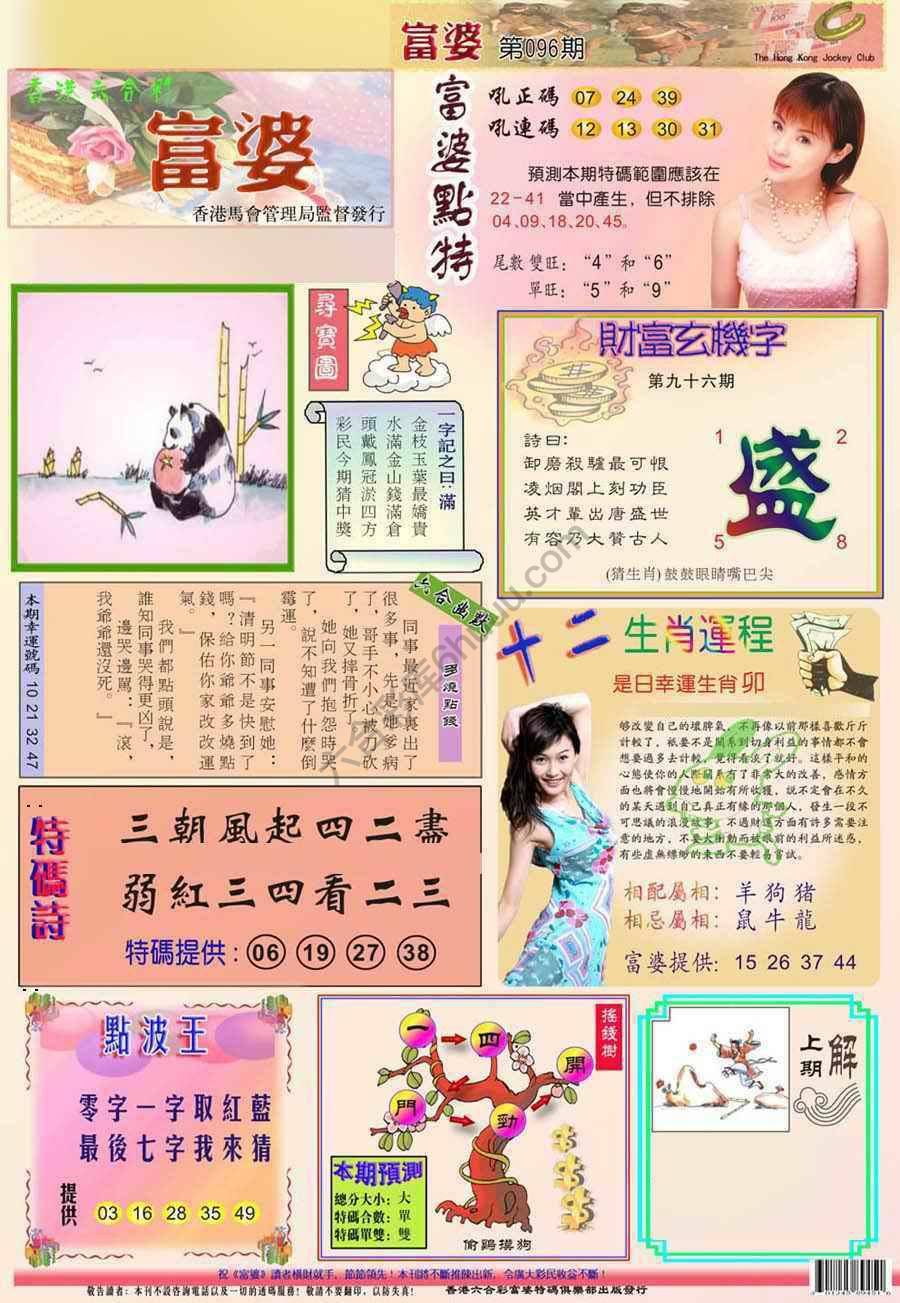 富婆 第096期
The Hong Kong Jockey Club
香港六合彩
富婆
香港馬會管理局監督發行
富婆點特
吼正碼 07 24 39
吼連碼 12 13 30 31
預測本期特碼範圍應該在
22-41 當中產生，但不排除
04、09、18、20、45。
尾數雙旺：“4”和“6”
單旺：“5”和“9”
尋寶圖
一字記之曰：滿
金枝玉葉最嬌貴
水滿金山錢滿倉
頭戴鳳冠淤四方
彩民今期猜中獎
財富玄機字
第九十六期
詩曰：
卸磨殺驢最可恨
凌烟閣上刻功臣
英才輩出唐盛世
有容乃大贊古人
1 2
盛
5 8
(猜生肖)鼓鼓眼睛嘴巴尖
六合幽默
多燒點錢
同事最近家裏出了
很多事，先是她爹病
了，哥手不小心被刀砍
了，她又摔骨折了
她向我們抱怨時哭
了，說不知遭了什麼倒
霉運。
另一同事安慰她：
『清明節不是快到了
嗎？給你爺爺多燒點
錢，保佑你家改改運
氣。』
我們都點頭說是，
誰知同事哭得更凶了，
邊哭邊罵：『滾，
我爺爺還沒死。』
本期幸運號碼 10 21 32 47
十二生肖運程
是日幸運生肖 卯
够改變自己的壞脾氣，不再像以前那樣喜歡斤斤
計較了，祇要不是關系到切身利益的事情都不會
想要過多去計較，覺得看淡了就好。這樣平和的
心態使你的人際關系有了非常大的改善，感情方
面也將會慢慢地開始有所收獲，說不定會在不久
的某天遇到自己真正有緣的那個人，發生一段不
可思議的浪漫故事。不過財運方面有許多需要注
意的地方，不要太衝動而被眼前的利益所迷惑，
有些虛無縹緲的東西不要輕易嘗試。
相配屬相：羊狗豬
相忌屬相：鼠牛龍
富婆提供：15 26 37 44
特碼詩
三朝風起四二盡
弱紅三四看二三
特碼提供：06 19 27 38
點波王
零字一字取紅藍
最後七字我來猜
提供 03 16 28 35 49
搖錢樹
一 四
門 勁 開
本期預測
總分大小：大
特碼合數：單
特碼單雙：雙
偷鷄摸狗
上期解
祝《富婆》讀者橫財就手，節節領先！本刊將不斷推陳出新，令廣大彩民收益不斷！
敬告讀者：本刊不設咨詢電話以及一切的透碼服務！敬請不要翻印，以防失真！ 香港六合彩富婆特碼俱樂部出版發行